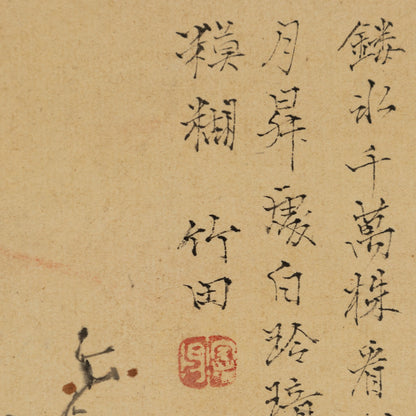 鏤氷千萬株看
月昇處白玲
糢糊 竹田